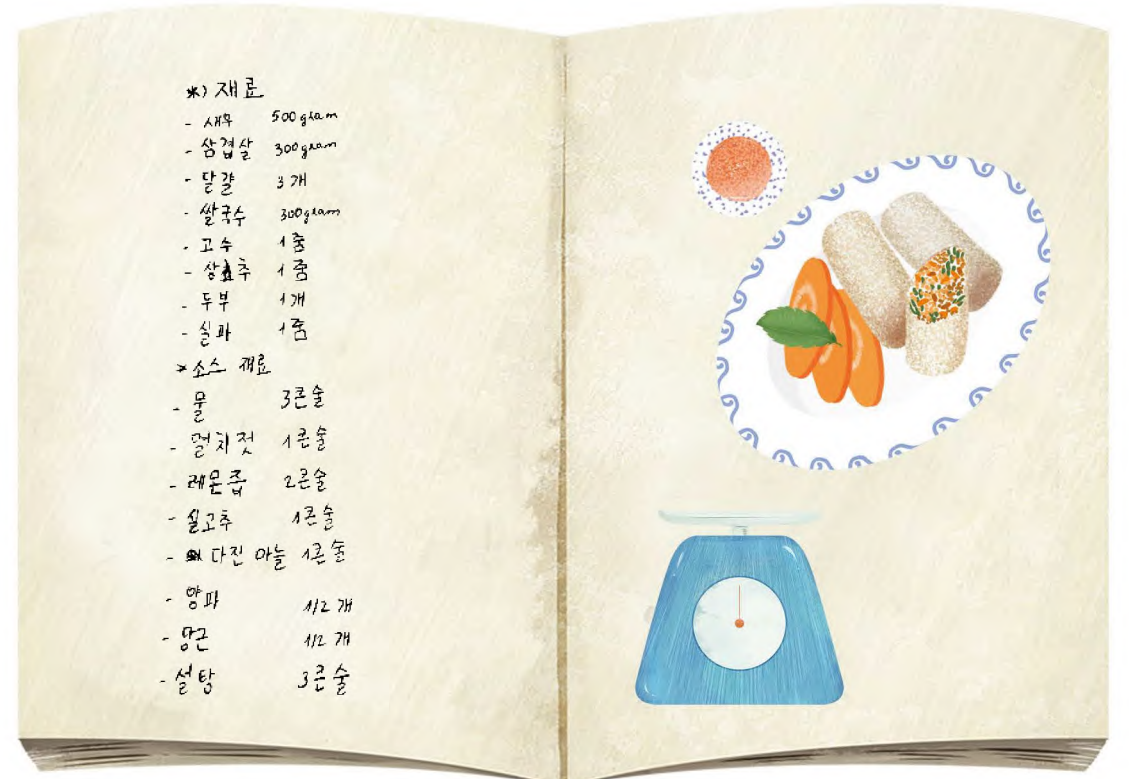 ※) 재료
- 새우 500 gram
- 삼겹살 300 gram
- 달걀 3 개
- 쌀국수 300 gram
- 고수 1 줌
- 상추 1 줌
- 두부 1 개
- 실파 1 줌
* 소스 재료
- 물 3큰술
- 멸치젓 1큰술
- 레몬즙 2큰술
- 실고추 1큰술
- 다진 마늘 1큰술
- 양파 1/2 개
- 당근 1/2 개
- 설탕 3큰술